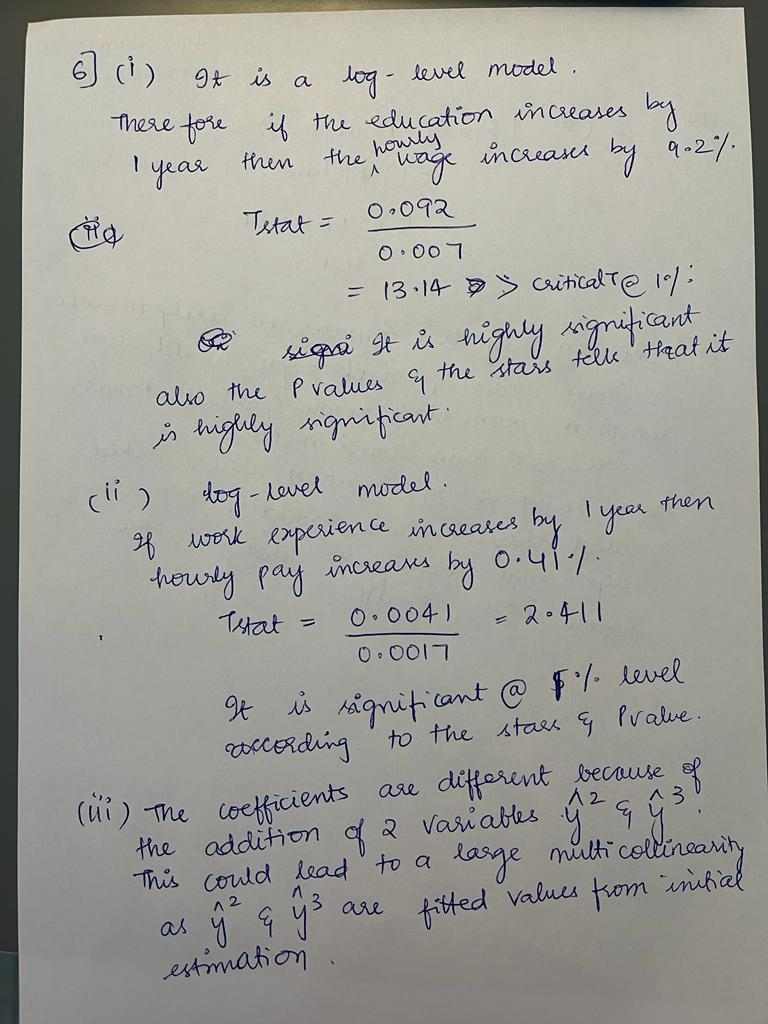 6] (i) It is a log-level model.
Therefore if the education increases by
1 year then the hourly wage increases by 9.2%.
Tstat = 0.092
0.007
= 13.14 > critical T @ 1%.
It is highly significant
also the P values & the stars tells that it
is highly significant.
(ii) log-level model.
If work experience increases by 1 year then
hourly pay increases by 0.41%.
Tstat = 0.0041 = 2.411
0.0017
It is significant @ 5% level
according to the stars & Pvalue.
(iii) The coefficients are different because of
the addition of 2 variables ŷ² & ŷ³.
This could lead to a large multicollinearity
as ŷ² & ŷ³ are fitted values from initial
estimation.